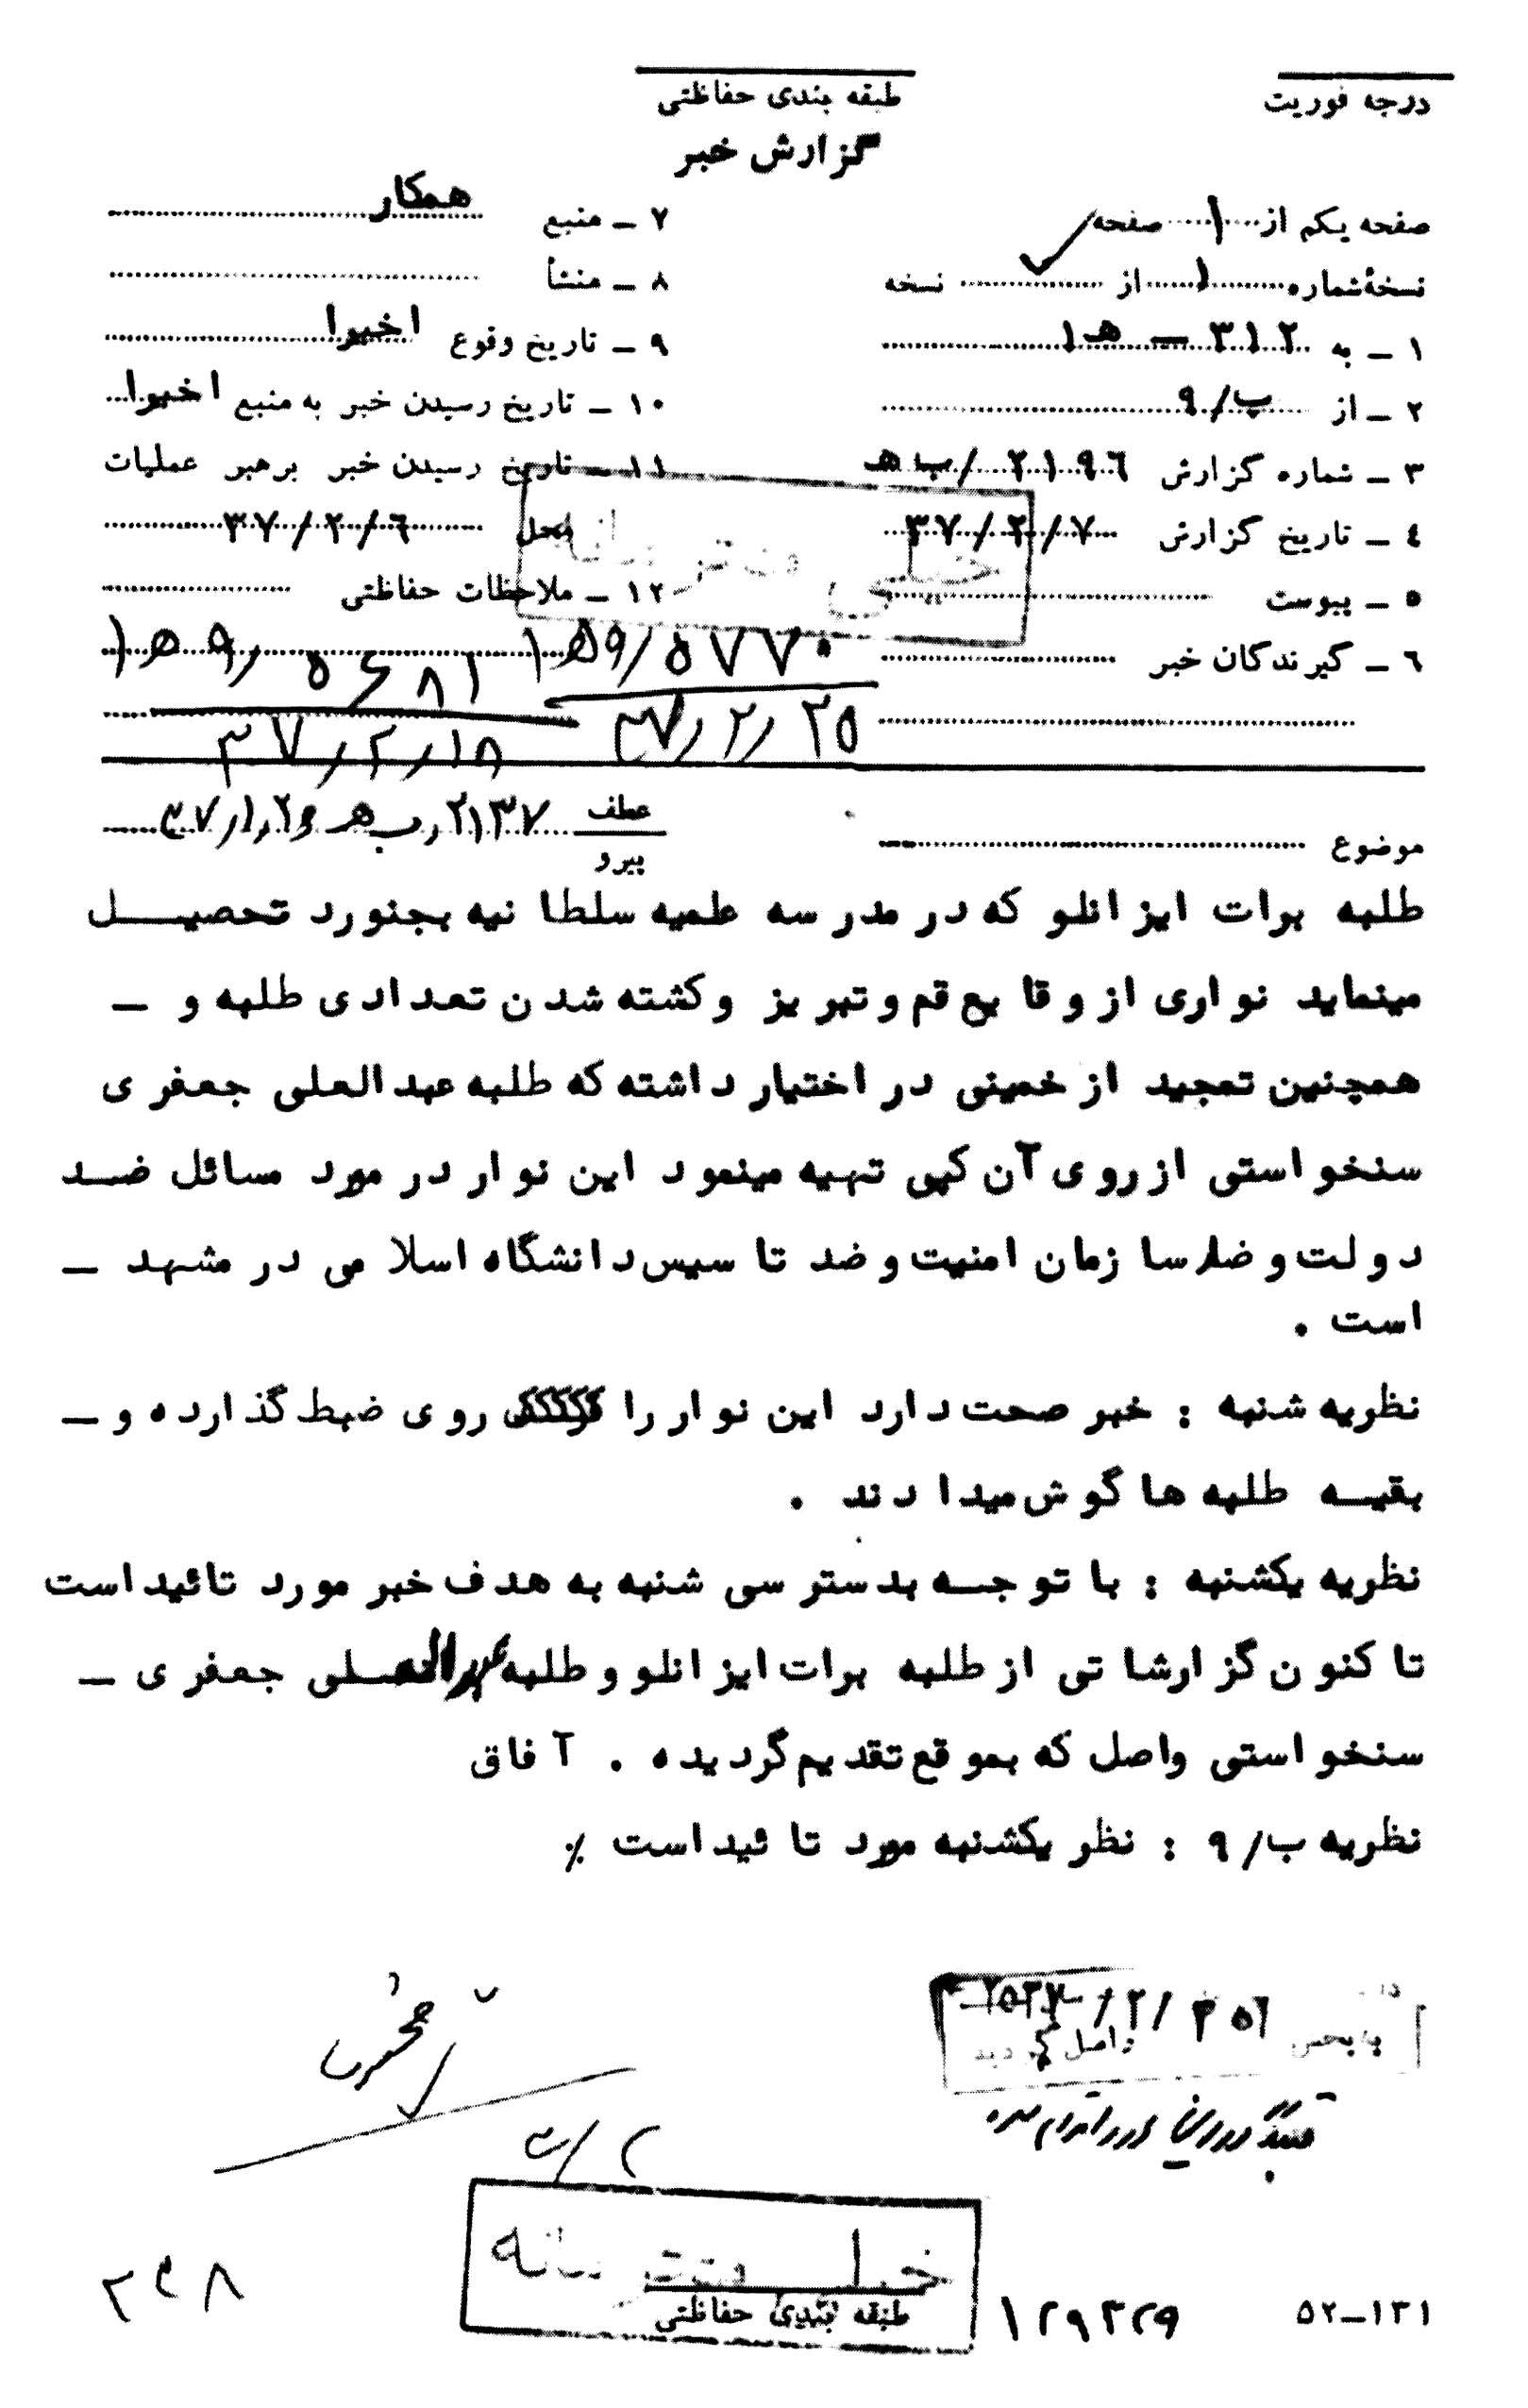 درجه فوریت
طبقه بندی حفاظتی
گزارش خبر
صفحه یکم از ۱ صفحه
نسخهٔ شماره ۱ از نسخه
۱ – به ۳۱۲ – هـ ۱
۲ – از ب/۹
۳ – شماره گزارش ۲۱۹۶/ب هـ
۴ – تاریخ گزارش ۳۷/۲/۷
۵ – پیوست
۶ – گیرندگان خبر
۷ – منبع همکار
۸ – منشأ
۹ – تاریخ وقوع اخیرا
۱۰ – تاریخ رسیدن خبر به منبع اخیرا
۱۱ – تاریخ رسیدن خبر برهبر عملیات
محل ۳۷/۲/۶
۱۲ – ملاحظات حفاظتی
خیلی محرمانه
۵۷۷۰/۹هـ۱
۳۷/۲/۲۵
۵۶۸۱/۹هـ۱
۳۷/۲/۱۸
موضوع
عطف
پیرو
۲۱۳۷/ب هـ ۳۷/۱/۲۶
طلبه برات ایزانلو که در مدرسه علمیه سلطانیه بجنورد تحصیل
مینماید نواری از وقایع قم و تبریز و کشته شدن تعدادی طلبه و –
همچنین تمجید از خمینی در اختیار داشته که طلبه عبدالعلی جعفری
سنخواستی از روی آن کپی تهیه مینمود این نوار در مورد مسائل ضد
دولت و ضد سازمان امنیت و ضد تاسیس دانشگاه اسلامی در مشهد –
است .
نظریه شنبه : خبر صحت دارد این نوار را روی ضبط گذارده و –
بقیه طلبه ها گوش میدادند .
نظریه یکشنبه : با توجه بدسترسی شنبه به هدف خبر مورد تائید است
تا کنون گزارشاتی از طلبه برات ایزانلو و طلبه عبدالعلی جعفری –
سنخواستی واصل که بموقع تقدیم گردیده . آفاق
نظریه ب/۹ : نظر یکشنبه مورد تائید است ٪
به بخش ۲۵۳۷/۲/
واصل گردید
خیلی محرمانه
طبقه بندی حفاظتی
۱۲۹۳۲۹
۵۲–۱۳۱